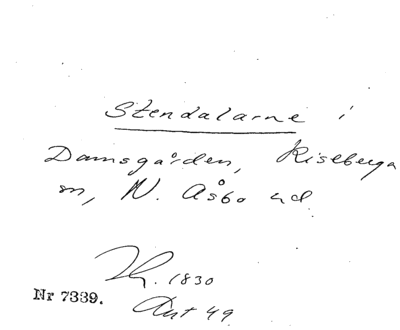 Stendalarne i
Damsgården, Riseberga
sn, N. Åsbo hd
Th. 1830
Nr 7339.
Ant 49